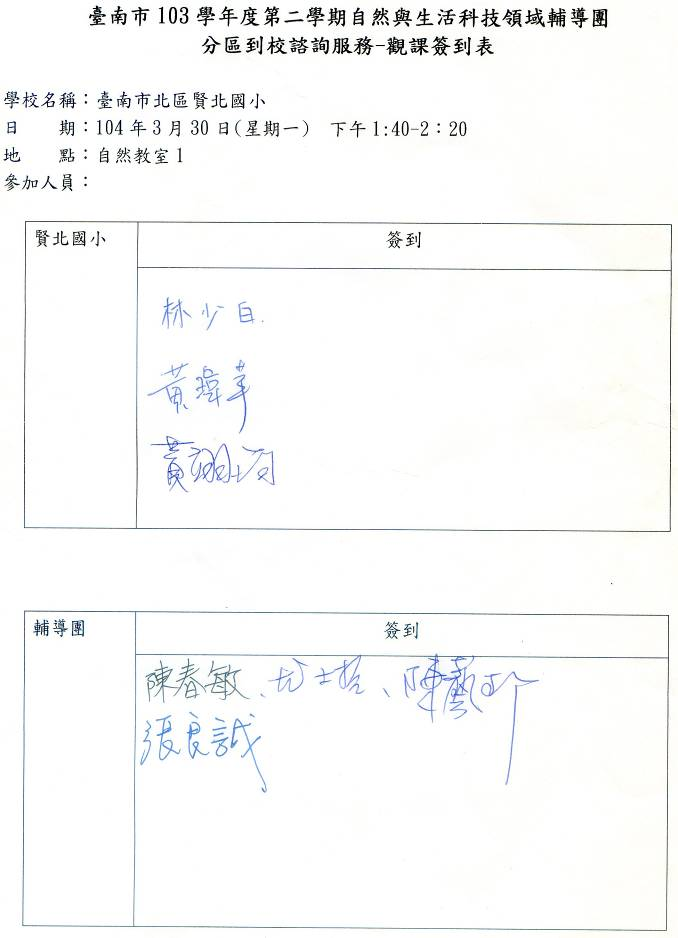 臺南市 103 學年度第二學期自然與生活科技領域輔導團
分區到校諮詢服務-觀課簽到表
學校名稱：臺南市北區賢北國小
日　　期：104 年 3 月 30 日(星期一)　下午 1:40-2：20
地　　點：自然教室 1
參加人員：
賢北國小　簽到
林少白
黃瑋苹
黃翊
輔導團　簽到
陳春敏、尤士哲、陳藝
張良誠